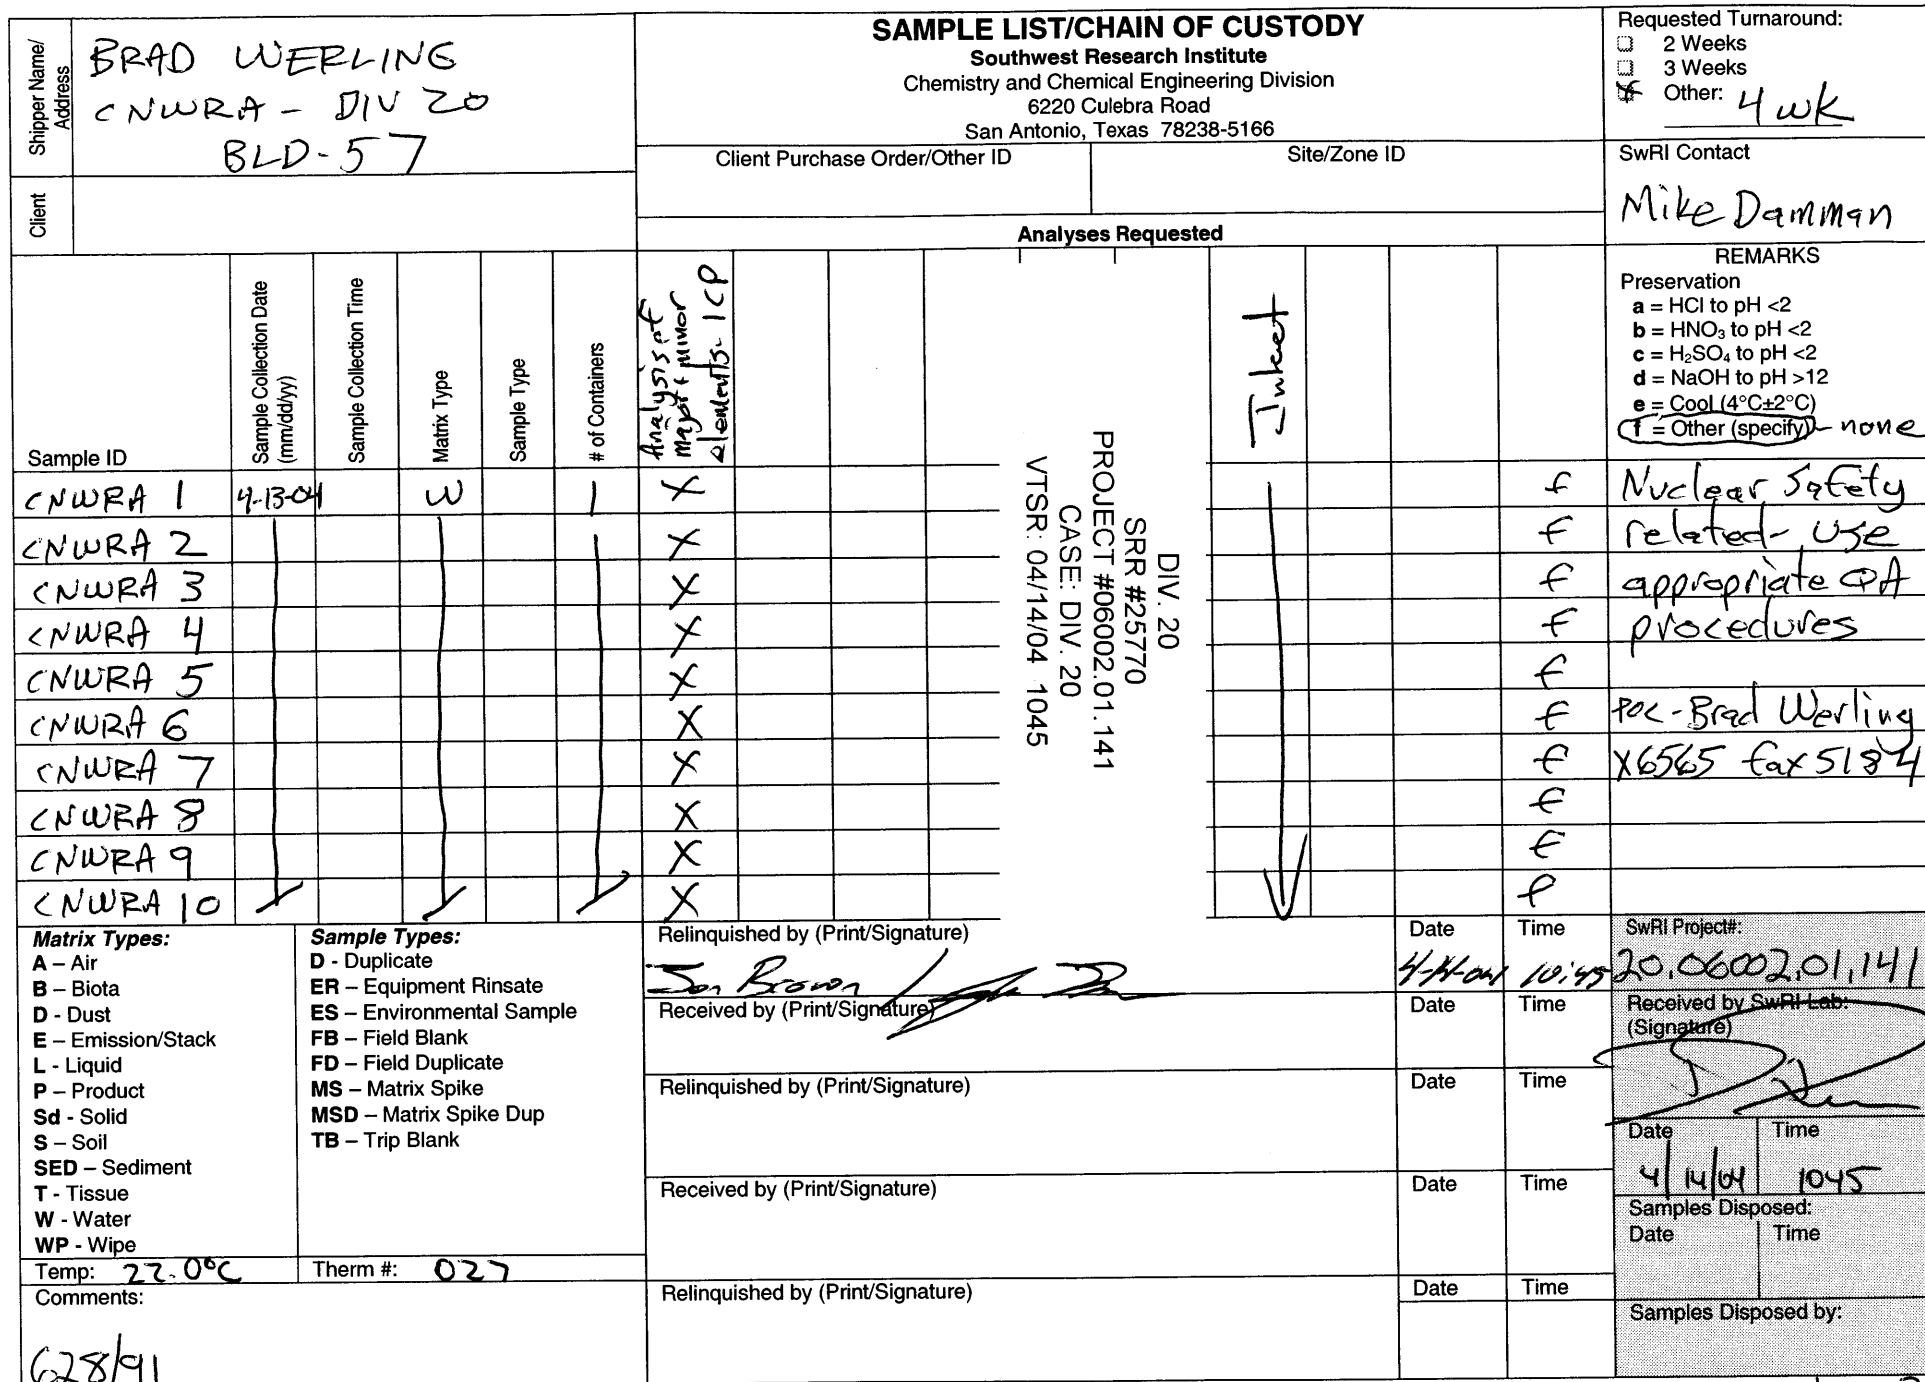 Shipper Name/
Address
BRAD WERLING
CNWRA - DIV 20
BLD-57
Client
SAMPLE LIST/CHAIN OF CUSTODY
Southwest Research Institute
Chemistry and Chemical Engineering Division
6220 Culebra Road
San Antonio, Texas 78238-5166
Client Purchase Order/Other ID
Site/Zone ID
Requested Turnaround:
2 Weeks
3 Weeks
Other: 4 wk
SwRI Contact
Mike Damman
Analyses Requested
Sample ID
Sample Collection Date
(mm/dd/yy)
Sample Collection Time
Matrix Type
Sample Type
# of Containers
Analysis of
major + minor
elements - ICP
Intact
REMARKS
Preservation
a = HCl to pH <2
b = HNO3 to pH <2
c = H2SO4 to pH <2
d = NaOH to pH >12
e = Cool (4°C±2°C)
f = Other (specify) - none
CNWRA 1 4-13-04 W 1 X f Nuclear Safety
CNWRA 2 X f related- use
CNWRA 3 X f appropriate QA
CNWRA 4 X f procedures
CNWRA 5 X f
CNWRA 6 X f POC - Brad Werling
CNWRA 7 X f X6565 fax 5184
CNWRA 8 X f
CNWRA 9 X f
CNWRA 10 X f
DIV. 20
SRR #25770
PROJECT #06002.01.141
CASE: DIV. 20
VTSR: 04/14/04 1045
Matrix Types:
A – Air
B – Biota
D - Dust
E – Emission/Stack
L - Liquid
P – Product
Sd - Solid
S – Soil
SED – Sediment
T - Tissue
W - Water
WP - Wipe
Sample Types:
D - Duplicate
ER – Equipment Rinsate
ES – Environmental Sample
FB – Field Blank
FD – Field Duplicate
MS – Matrix Spike
MSD – Matrix Spike Dup
TB – Trip Blank
Temp: 22.0°C
Therm #: 027
Comments:
628/91
Relinquished by (Print/Signature) Date Time
Jon Brown 4-14-04 10:45
Received by (Print/Signature) Date Time
Relinquished by (Print/Signature) Date Time
Received by (Print/Signature) Date Time
Relinquished by (Print/Signature) Date Time
SwRI Project#:
20.06002.01.141
Received by SwRI Lab:
(Signature)
Date Time
4/14/04 1045
Samples Disposed:
Date Time
Samples Disposed by: